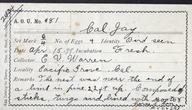 A. O. U. No. 481 Cal Jay
Set Mark No. of Eggs 4 Identity Bird seen
Date Apr. 15. Incubation Fresh
Collector E. V. Warren
Locality Pacific Grove, Cal
Remarks The nest was near the end of
a limb in pine 22 ft up. Composed of
sticks, twigs and lined with rootlets